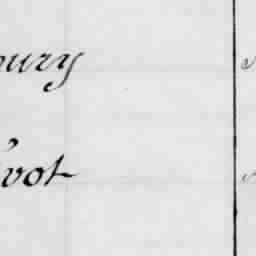 oury
vot